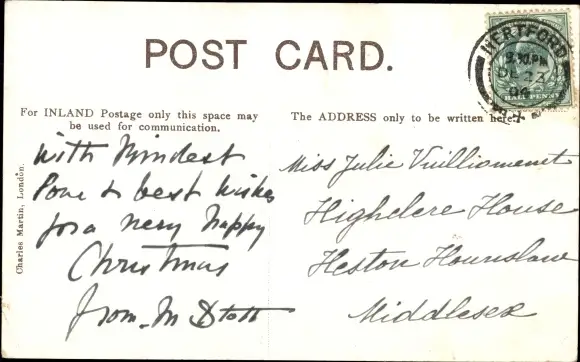 POST CARD.
HERTFORD
DE 23
04
HALF PENNY
For INLAND Postage only this space may
be used for communication.
The ADDRESS only to be written here.
Charles Martin, London.
with kindest
love & best wishes
for a very happy
Christmas
from M Stott
Miss Julie Vuilliamenet
Highclere House
Heston Hounslow
Middlesex